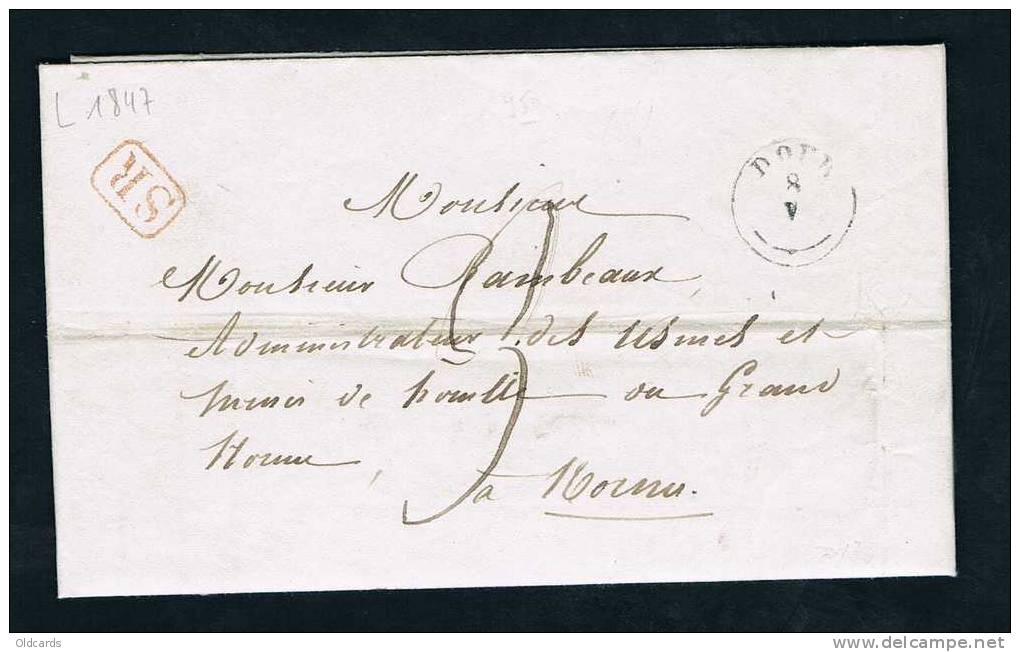 L 1847
SR
DOUR
8
V
Monsieur
Monsieur Rainbeaux,
Administrateur des Usines et
mines de houille du Grand
Hornu,
à Hornu.
Oldcards
http://www.delcampe.net